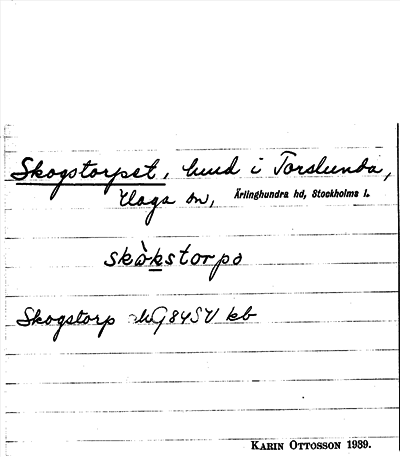 Skogstorpet, lund i Torslunda,
Ärlinghundra hd, Stockholms l.
skòkstorpə
Skogstorp
KARIN OTTOSSON 1989.